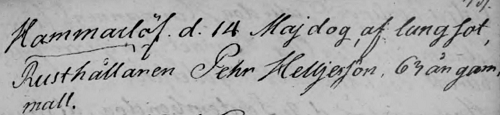 Hammarlöf. d. 14 Maj dog, af lungsot,
Rusthållaren Pehr Helljesson, 63 år gam,
mall.